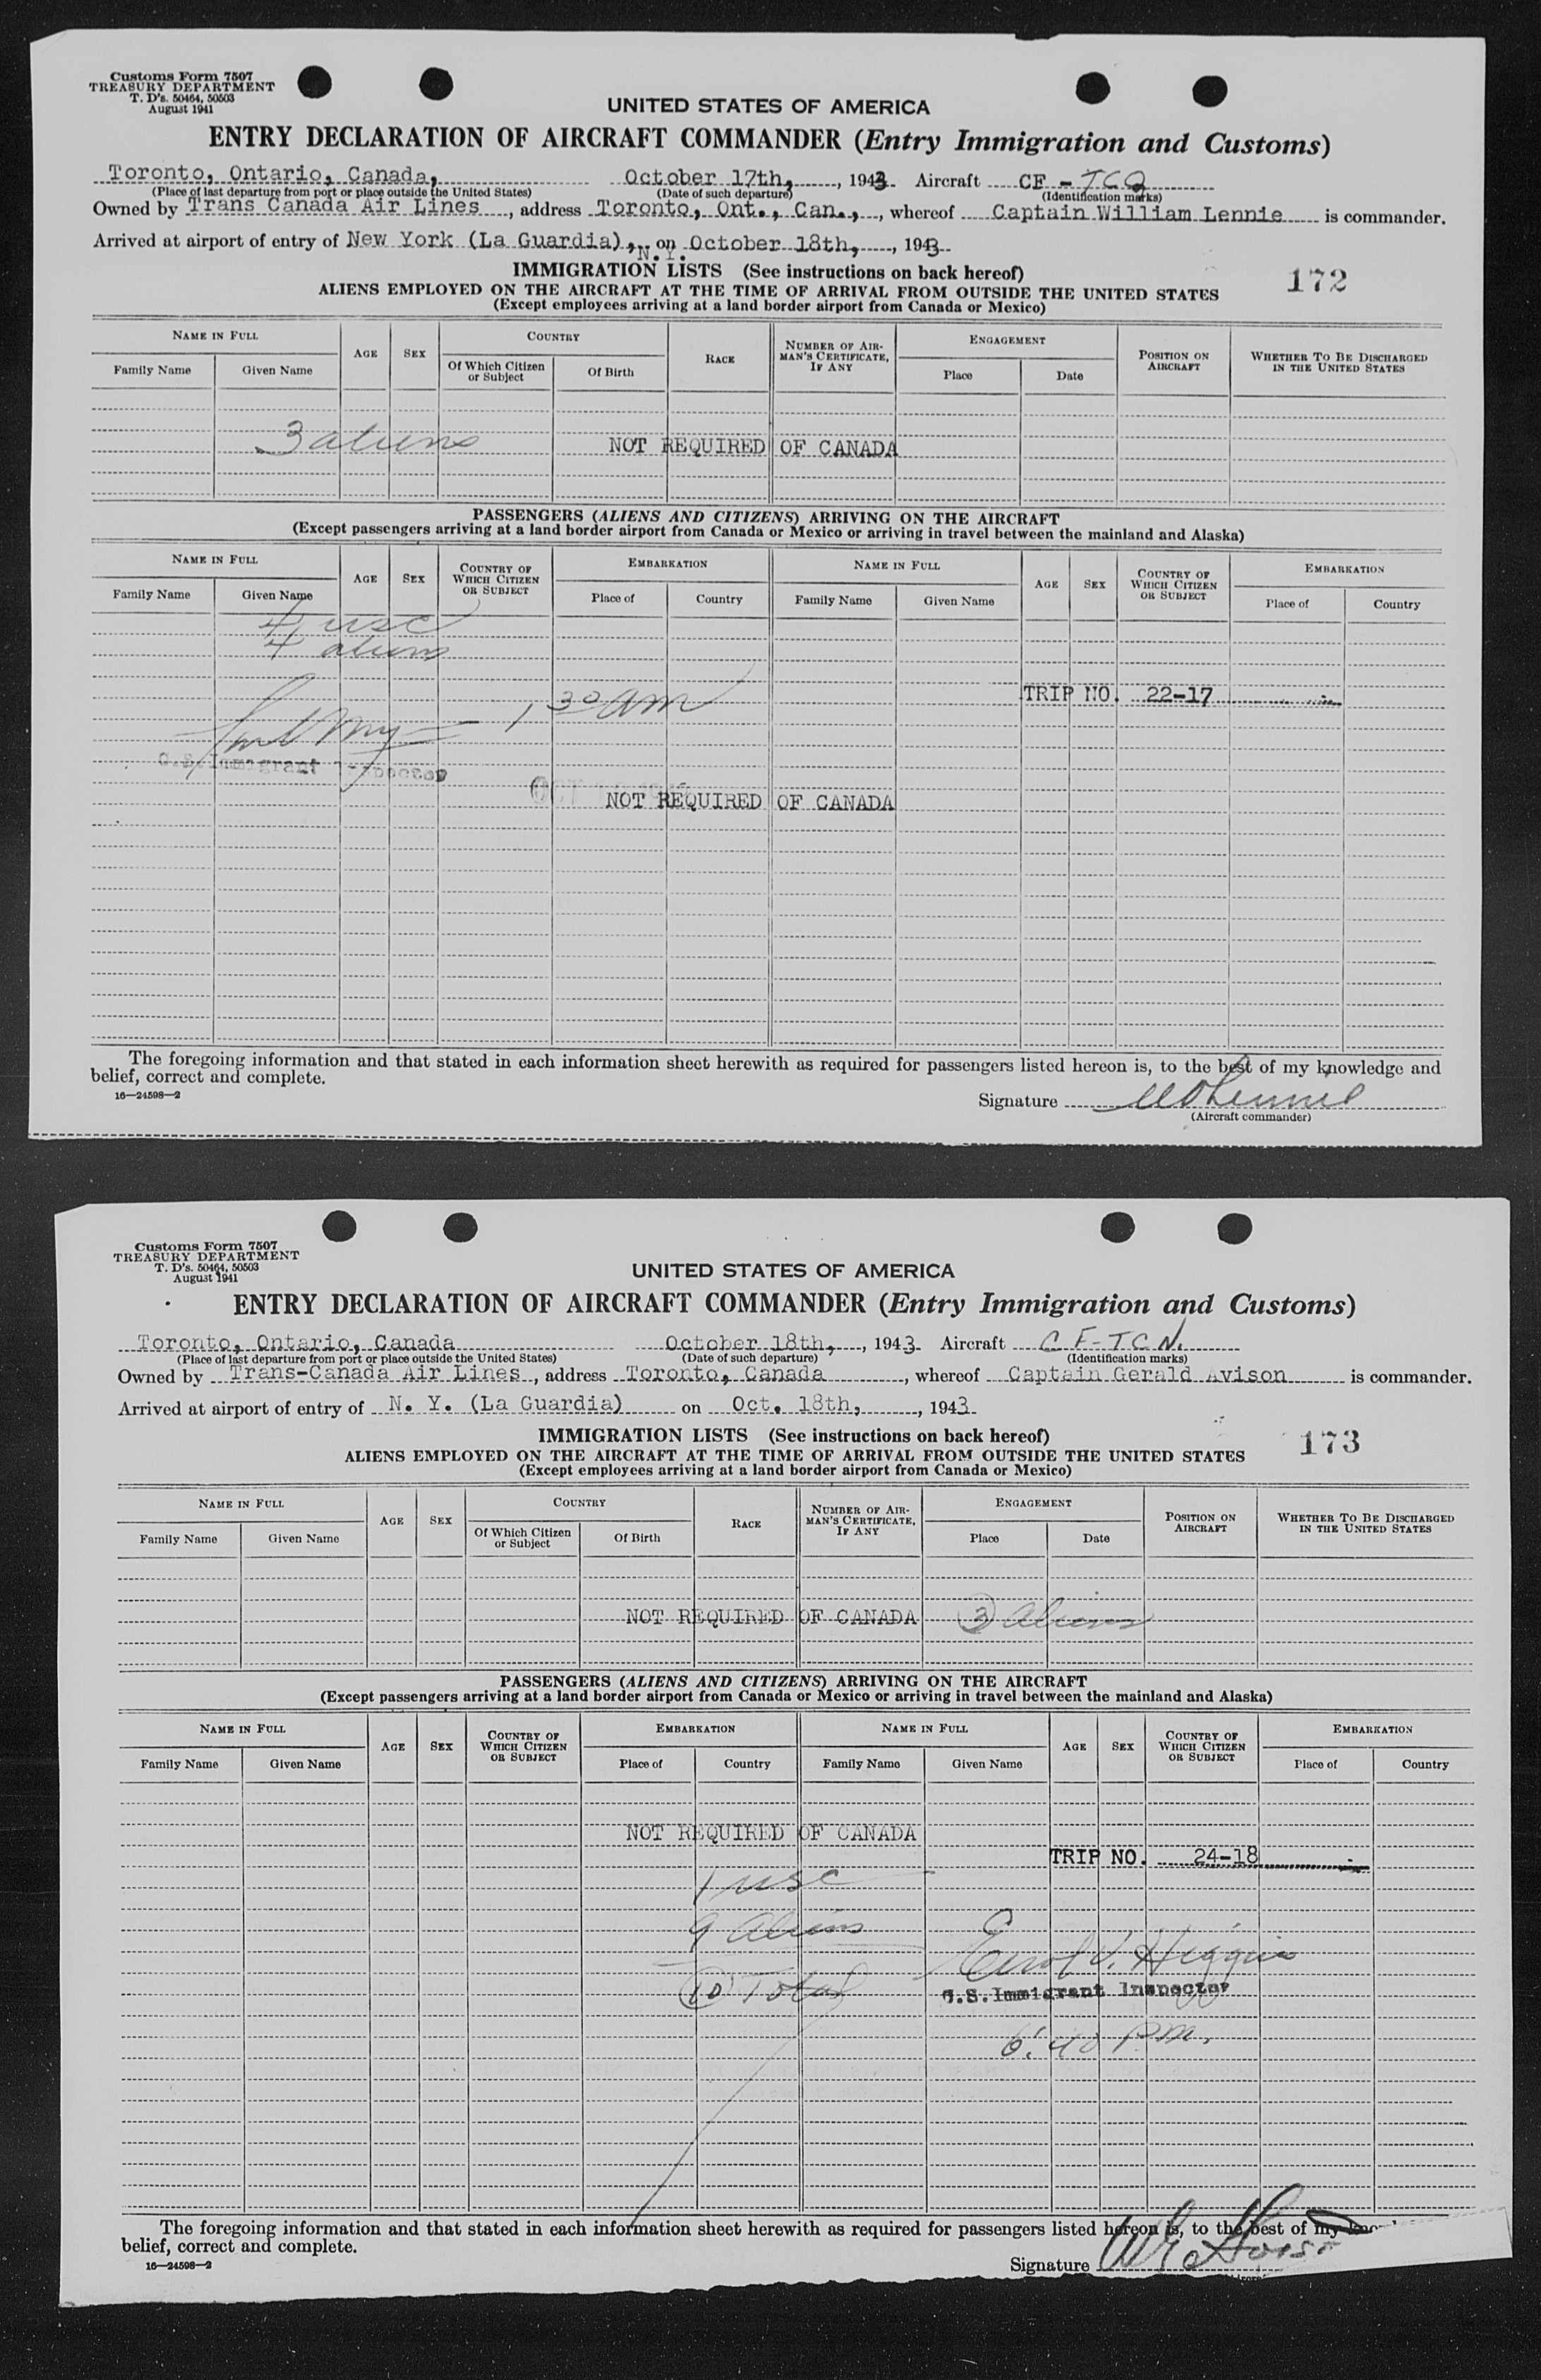 Customs Form 7507
TREASURY DEPARTMENT
T. D's. 50464, 50503
August 1941
UNITED STATES OF AMERICA
ENTRY DECLARATION OF AIRCRAFT COMMANDER (Entry Immigration and Customs)
Toronto, Ontario, Canada, October 17th, , 1943 Aircraft CF - TCQ
(Place of last departure from port or place outside the United States) (Date of such departure) (Identification marks)
Owned by Trans Canada Air Lines , address Toronto, Ont., Can., , whereof Captain William Lennie is commander.
Arrived at airport of entry of New York (La Guardia), N.Y. on October 18th, , 1943
IMMIGRATION LISTS (See instructions on back hereof)
172
ALIENS EMPLOYED ON THE AIRCRAFT AT THE TIME OF ARRIVAL FROM OUTSIDE THE UNITED STATES
(Except employees arriving at a land border airport from Canada or Mexico)
NAME IN FULL AGE SEX COUNTRY RACE NUMBER OF AIRMAN'S CERTIFICATE, IF ANY ENGAGEMENT POSITION ON AIRCRAFT WHETHER TO BE DISCHARGED IN THE UNITED STATES
Family Name Given Name Of Which Citizen or Subject Of Birth Place Date
3 aliens NOT REQUIRED OF CANADA
PASSENGERS (ALIENS AND CITIZENS) ARRIVING ON THE AIRCRAFT
(Except passengers arriving at a land border airport from Canada or Mexico or arriving in travel between the mainland and Alaska)
NAME IN FULL AGE SEX COUNTRY OF WHICH CITIZEN OR SUBJECT EMBARKATION NAME IN FULL AGE SEX COUNTRY OF WHICH CITIZEN OR SUBJECT EMBARKATION
Family Name Given Name Place of Country Family Name Given Name Place of Country
4 usc
4 aliens
1 30 am TRIP NO. 22-17
U.S. Immigrant Inspector
OCT
NOT REQUIRED OF CANADA
The foregoing information and that stated in each information sheet herewith as required for passengers listed hereon is, to the best of my knowledge and
belief, correct and complete.
16—24598—2
Signature W Lennie
(Aircraft commander)
Customs Form 7507
TREASURY DEPARTMENT
T. D's. 50464, 50503
August 1941
UNITED STATES OF AMERICA
ENTRY DECLARATION OF AIRCRAFT COMMANDER (Entry Immigration and Customs)
Toronto, Ontario, Canada October 18th, , 1943 Aircraft CF-TCN.
(Place of last departure from port or place outside the United States) (Date of such departure) (Identification marks)
Owned by Trans-Canada Air Lines , address Toronto, Canada , whereof Captain Gerald Avison is commander.
Arrived at airport of entry of N. Y. (La Guardia) on Oct. 18th, , 1943
IMMIGRATION LISTS (See instructions on back hereof)
173
ALIENS EMPLOYED ON THE AIRCRAFT AT THE TIME OF ARRIVAL FROM OUTSIDE THE UNITED STATES
(Except employees arriving at a land border airport from Canada or Mexico)
NAME IN FULL AGE SEX COUNTRY RACE NUMBER OF AIRMAN'S CERTIFICATE, IF ANY ENGAGEMENT POSITION ON AIRCRAFT WHETHER TO BE DISCHARGED IN THE UNITED STATES
Family Name Given Name Of Which Citizen or Subject Of Birth Place Date
NOT REQUIRED OF CANADA 3 Aliens
PASSENGERS (ALIENS AND CITIZENS) ARRIVING ON THE AIRCRAFT
(Except passengers arriving at a land border airport from Canada or Mexico or arriving in travel between the mainland and Alaska)
NAME IN FULL AGE SEX COUNTRY OF WHICH CITIZEN OR SUBJECT EMBARKATION NAME IN FULL AGE SEX COUNTRY OF WHICH CITIZEN OR SUBJECT EMBARKATION
Family Name Given Name Place of Country Family Name Given Name Place of Country
NOT REQUIRED OF CANADA
TRIP NO. 24-18
1 usc
9 Aliens
Errol V. Higgins
10 Total U.S. Immigrant Inspector
6:40 P.M.
The foregoing information and that stated in each information sheet herewith as required for passengers listed hereon is, to the best of my
belief, correct and complete.
16—24598—2
Signature